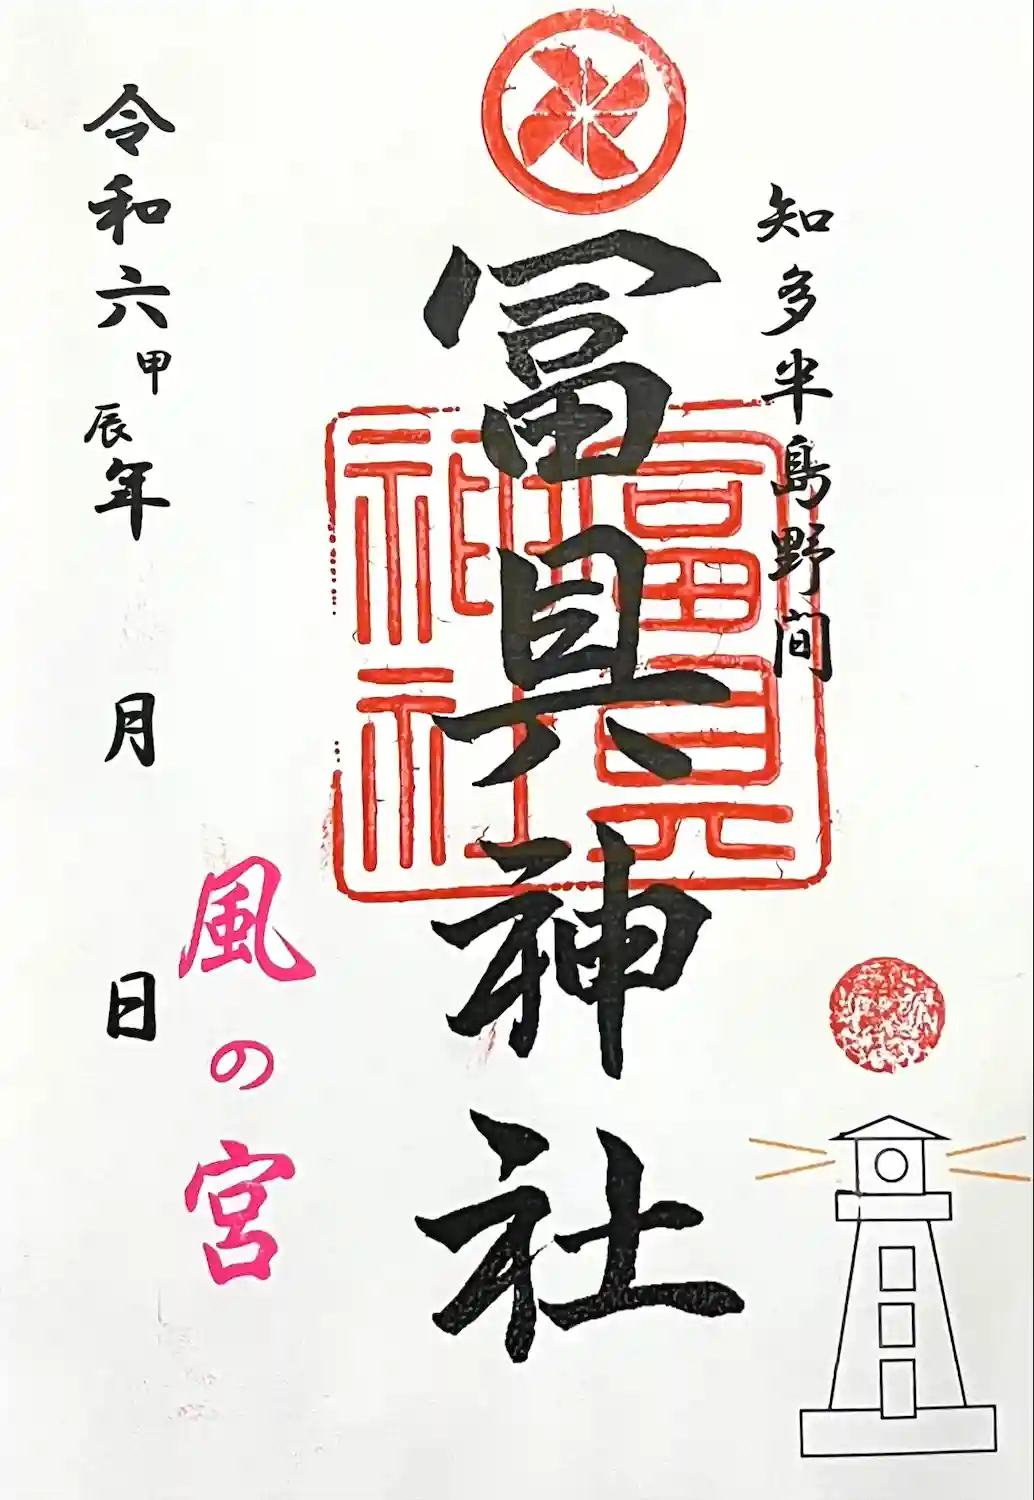 知多半島野間
冨具神社
冨具
神社
風の宮
令和六甲辰年　月　日